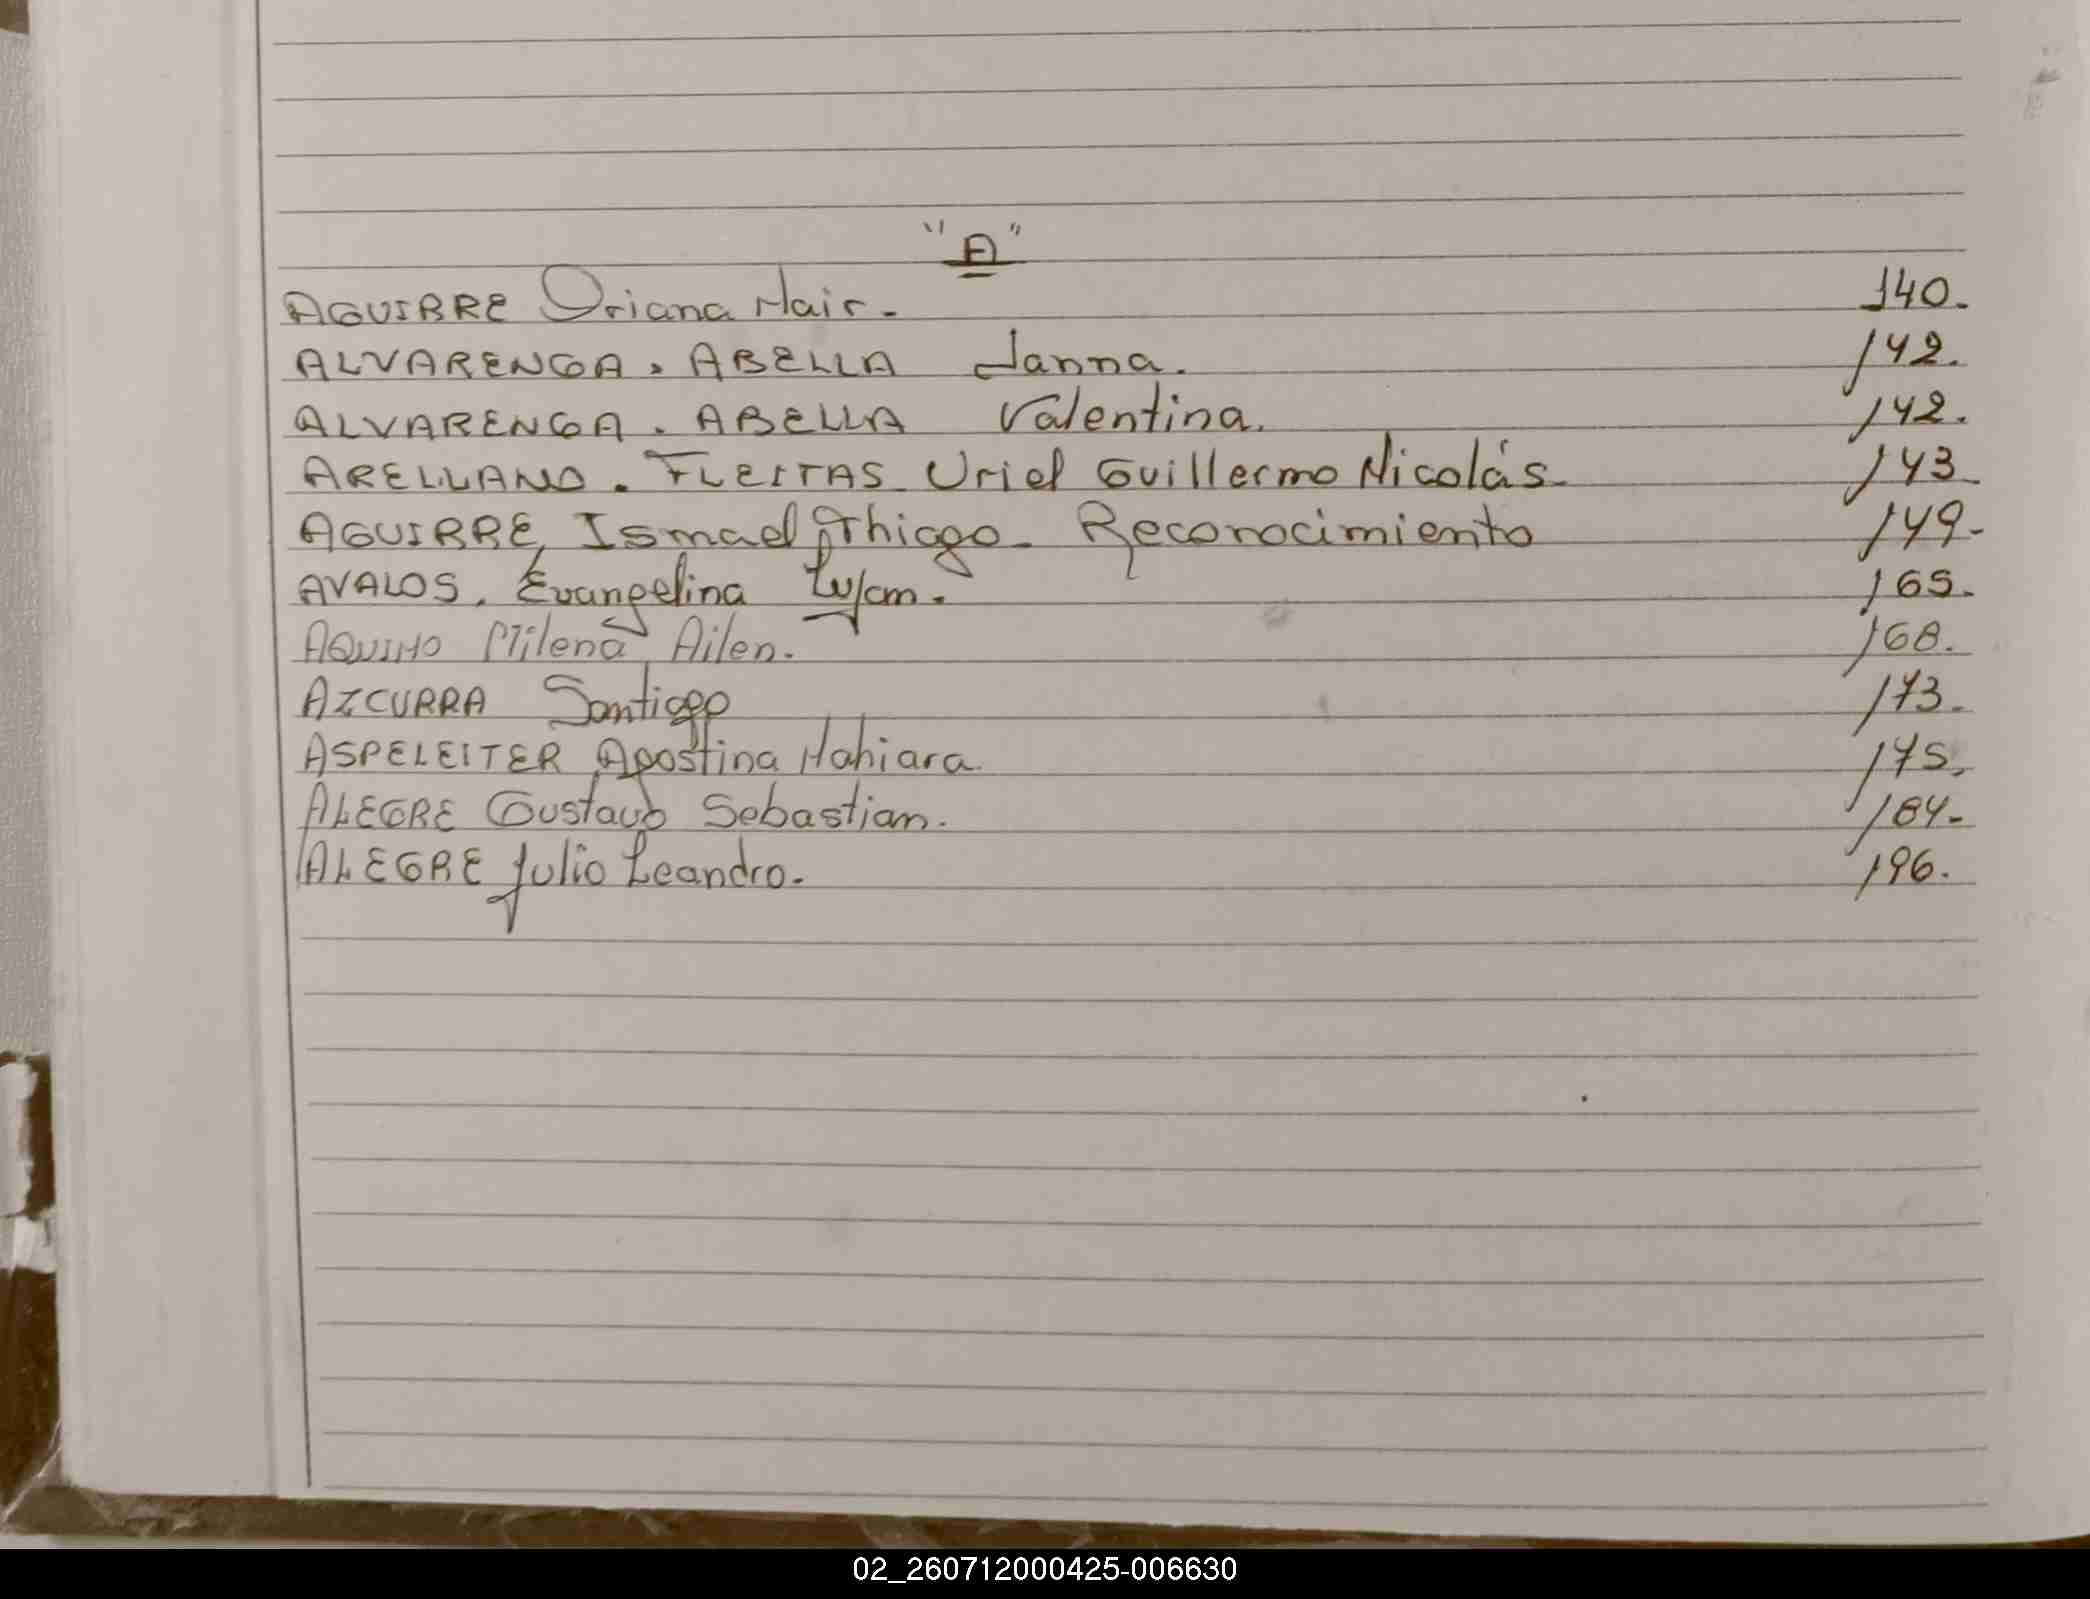 "A"
AGUIRRE Oriana Nair. 140.
ALVARENGA. ABELLA Janna. 142.
ALVARENGA. ABELLA Valentina. 142.
ARELLANO. FLEITAS Uriel Guillermo Nicolás. 143.
AGUIRRE, Ismael Thiago. Reconocimiento 149.
AVALOS. Evangelina Lujan. 165.
AQUINO Milena Ailen. 168.
AZCURRA Santiago 173.
ASPELEITER Agostina Nahiara. 175.
ALEGRE Gustavo Sebastian. 184.
ALEGRE Julio Leandro. 196.
02_260712000425-006630